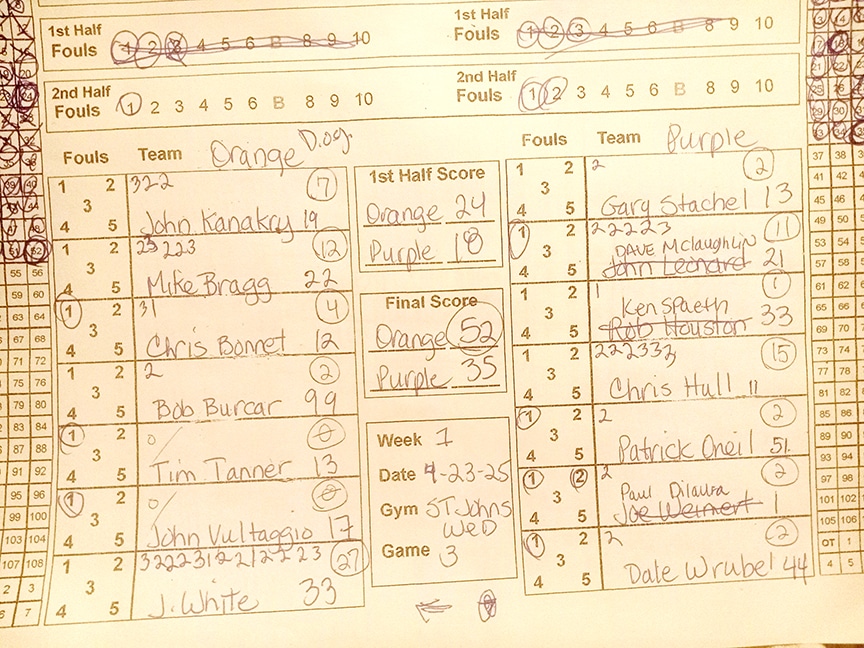 1st Half Fouls 1 2 3 4 5 6 B 8 9 10
1st Half Fouls 1 2 3 4 5 6 B 8 9 10
2nd Half Fouls 1 2 3 4 5 6 B 8 9 10
2nd Half Fouls 1 2 3 4 5 6 B 8 9 10
Fouls Team Orange Dog.
1 2 3 4 5
322 7
John Kanakry 19
1 2 3 4 5
12
Mike Bragg 22
1 2 3 4 5
31 4
Chris Bonnet 12
1 2 3 4 5
2 2
Bob Burcar 99
1 2 3 4 5
0 0
Tim Tanner 13
1 2 3 4 5
0 0
John Vultaggio 17
1 2 3 4 5
3222312212223 27
J. White 33
1st Half Score
Orange 24
Purple 18
Final Score
Orange 52
Purple 35
Week 1
Date 4-23-25
Gym ST Johns
WED
Game 3
Fouls Team Purple
1 2 3 4 5
2 2
Gary Stachel 13
1 2 3 4 5
22223 11
DAVE Mclaughlin
John Leonard 21
1 2 3 4 5
1 1
Ken Spaeth
Rob Houston 33
1 2 3 4 5
222333 15
Chris Hull 11
1 2 3 4 5
2 2
Patrick Oneil 51
1 2 3 4 5
2 2
Paul Dilaura
Joe Weinert 1
1 2 3 4 5
2 2
Dale Wrubel 44
55 56
59 60
63 64
67 68
71 72
75 76
79 80
83 84
87 88
91 92
95 96
99 100
103 104
107 108
2 3
6 7
37 38
41 42
45 46
49 50
53 54
57 58
61 62
65 66
69 70
73 74
77 78
81 82
85 86
89 90
93 94
97 98
101 102
105 106
OT 1
4 5